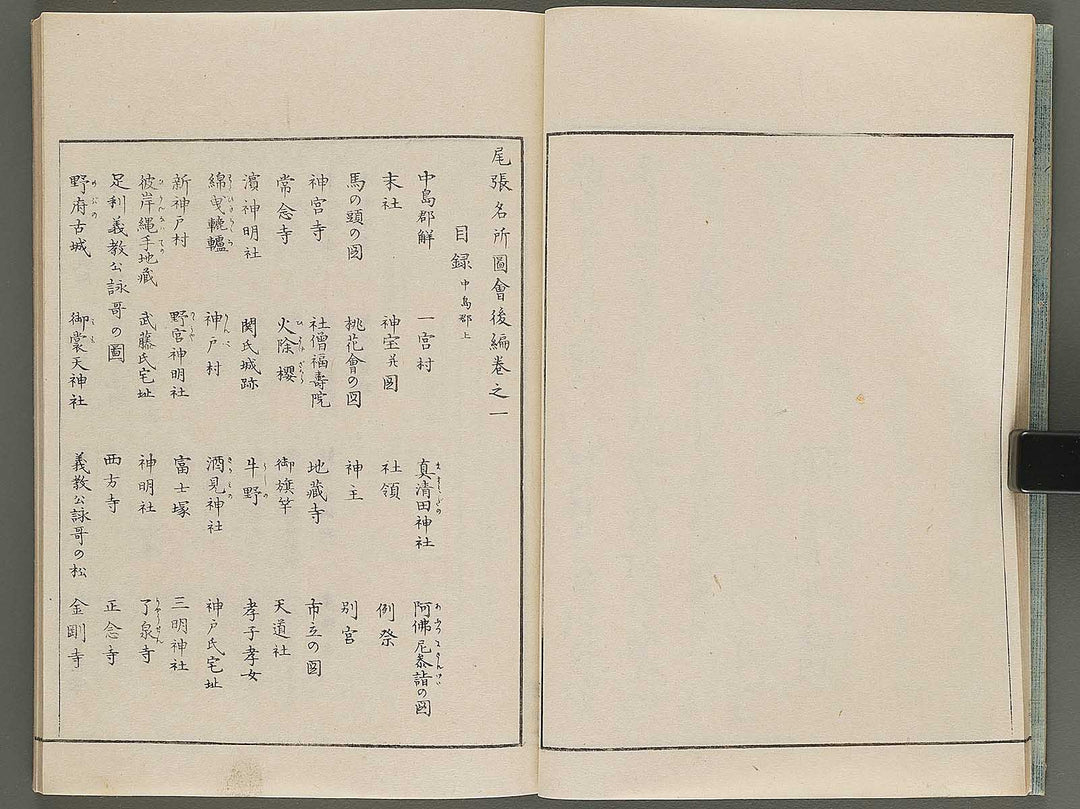 尾張名所圖會後編卷之一
目録 中島郡上
中島郡解 一宮村 真清田神社 阿佛尼泰詣の図
末社 神宝并図 社領 例祭
馬の頭の図 桃花會の図 神主 別宮
神宮寺 社僧福壽院 地藏寺 市立の図
常念寺 火除櫻 御旗竿 天道社
濱神明社 関氏城跡 牛野 孝子孝女
綿曳轆轤 神戸村 酒見神社 神戸氏宅址
新神戸村 野宮神明社 富士塚 三明神社
彼岸縄手地藏 武藤氏宅址 神明社 了泉寺
足利義教公詠哥の圖 西方寺 正念寺
野府古城 御裳天神社 義教公詠哥の松 金剛寺